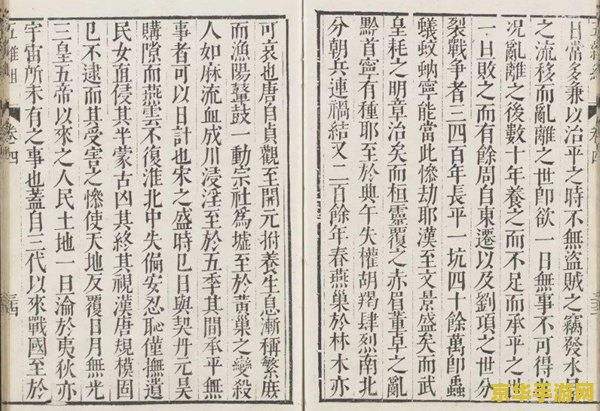 日常多兼以治平之時不無盜賊之竊發水
之流移而亂離之世卽欲一日無事不可得
况亂離之後數十年養之而不足而承平之
一日敗之而有餘周自東遷以及劉項之世分
裂戰爭者三四百年長平一坑四十餘萬卽蟲
蟻蚊蚋寧能當此慘劫耶漢至文景盛矣而武
皇耗之明章治矣而桓靈覆之赤眉董卓之亂
黔首寧有種耶至於典午失權胡羯肆烈南北
分朝兵連禍結又二百餘年春燕巢於林木亦
可哀也唐自貞觀至開元拊養生息漸稱繁庶
而漁陽鼙鼓一動宗社為墟至於黃巢之變殺
人如麻流血成川浸淫至於五季其間承平無
事者可以日計也宋之盛時巳日與契丹元昊
購隙而燕雲不復淮北中失偏安忍恥僅撫遺
民女直侵其半蒙古凶其終其視漢唐規模固
巳不逮而其受害之慘使天地反覆日月無光
三皇五帝以來之人民土地一日淪於夷狄亦
宇宙所未有之事也蓋自三代以來戰國至於
五雜組 卷四
京华手游网